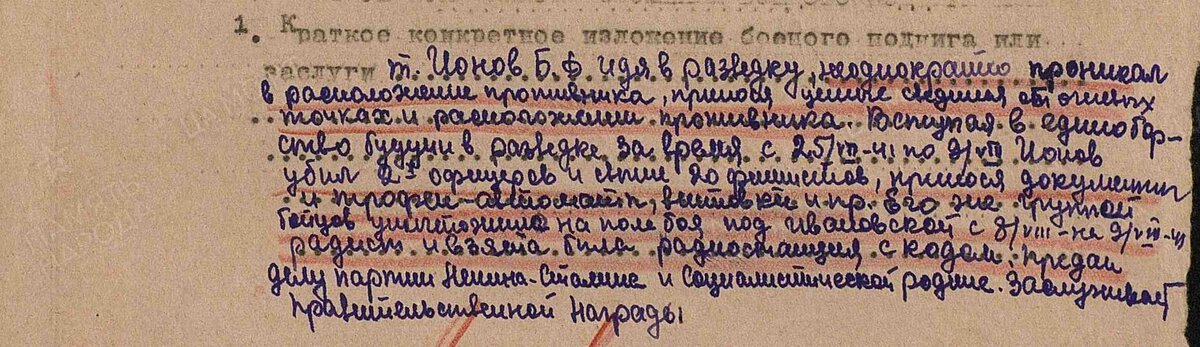 1. Краткое конкретное изложение боевого подвига или
заслуги т. Ионов Б.Ф. идя в разведку, неоднократно проникал
в расположение противника, принося ценные сведения об огневых
точках и расположении противника. Вступая в единобор-
ство будучи в разведке за время с 25/VII-41 по 9/VIII Ионов
убил 2х офицеров и свыше 20 фашистов, принося документы
и трофеи-автоматы, винтовки и пр. Его же группой
бойцов уничтожено на поле боя под Ивановской с 8/VIII-на 9/VIII-41
радист и взята была радиостанция с кодом. Предан
делу партии Ленина-Сталина и Социалистической родине. Заслуживает
Правительственной награды